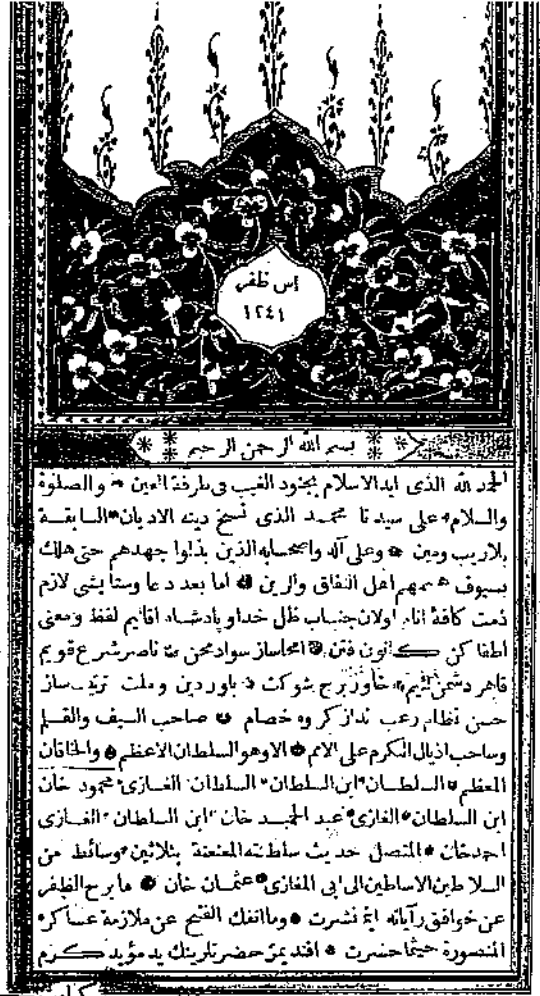 اس ظفر
١٢٤١
بسم الله الرحمن الرحيم
الحمد لله الذى ايد الاسلام بجنود الغيب فى طرفة العين * والصلوة
والسلام * على سيدنا محمد الذى نسخ دينه الاديان * السابقة
بلاريب ومين * وعلى آله واصحابه الذين بذلوا جهدهم حتى هلك
بسيوف هممهم اهل النفاق والرين * اما بعد دعا وستايشى لازم
ذمت كافۀ انام اولان جناب ظل خدا و پادشاه اقاليم لفظ ومعنى
اطفا كن كانون فتن * امحاساز سواد محن * ناصر شرع قويم
قاهر دشمن * خاور برج شوكت * ياور دين وملت ترتيب ساز
حسن نظام رعب انداز كروه خصام * صاحب السيف والقلم
وصاحب اذيال الكرم على الامم * الا وهو السلطان الاعظم * والخاقان
المعظم * السلطان * ابن السلطان * السلطان الغازى * محمود خان
ابن السلطان * الغازى * عبد الحميد خان * ابن السلطان * الغازى
احمد خان * المتصل حديث سلطنته المعنعنة بثلاثين * وسائط من
السلاطين الاساطين الى ابى المغازى * عثمان خان * ما برح الظفر
عن خوافق رآياته اينما نشرت * وما انفك الفتح عن ملازمة عساكره
المنصورة حيثما حضرت * افنديمز حضرتلرينك يد مؤيد كرم